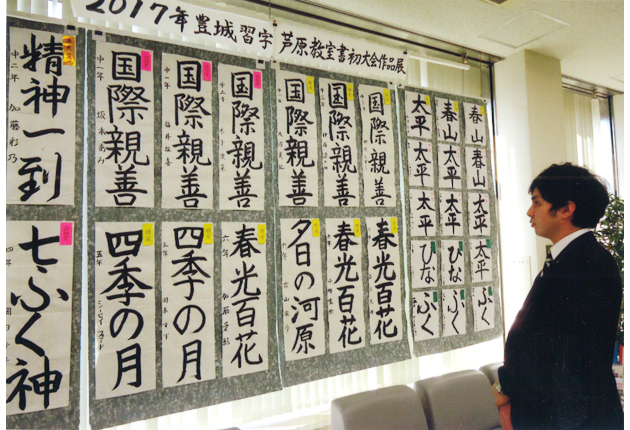 2017年豊城習字 芦原教室書初大会作品展
精神一到
中二年 加藤彩乃
国際親善
中一年 坂本あみ
国際親善
中一年
国際親善
国際親善
国際親善
国際親善
七ふく神
四年
四季の月
五年
四季の月
五年
春光百花
六年
夕日の河原
春光百花
春光百花
太平 春山 春山
太平 太平 春山
太平 太平 太平
ひな ひな 太平
ふく ふく ふく